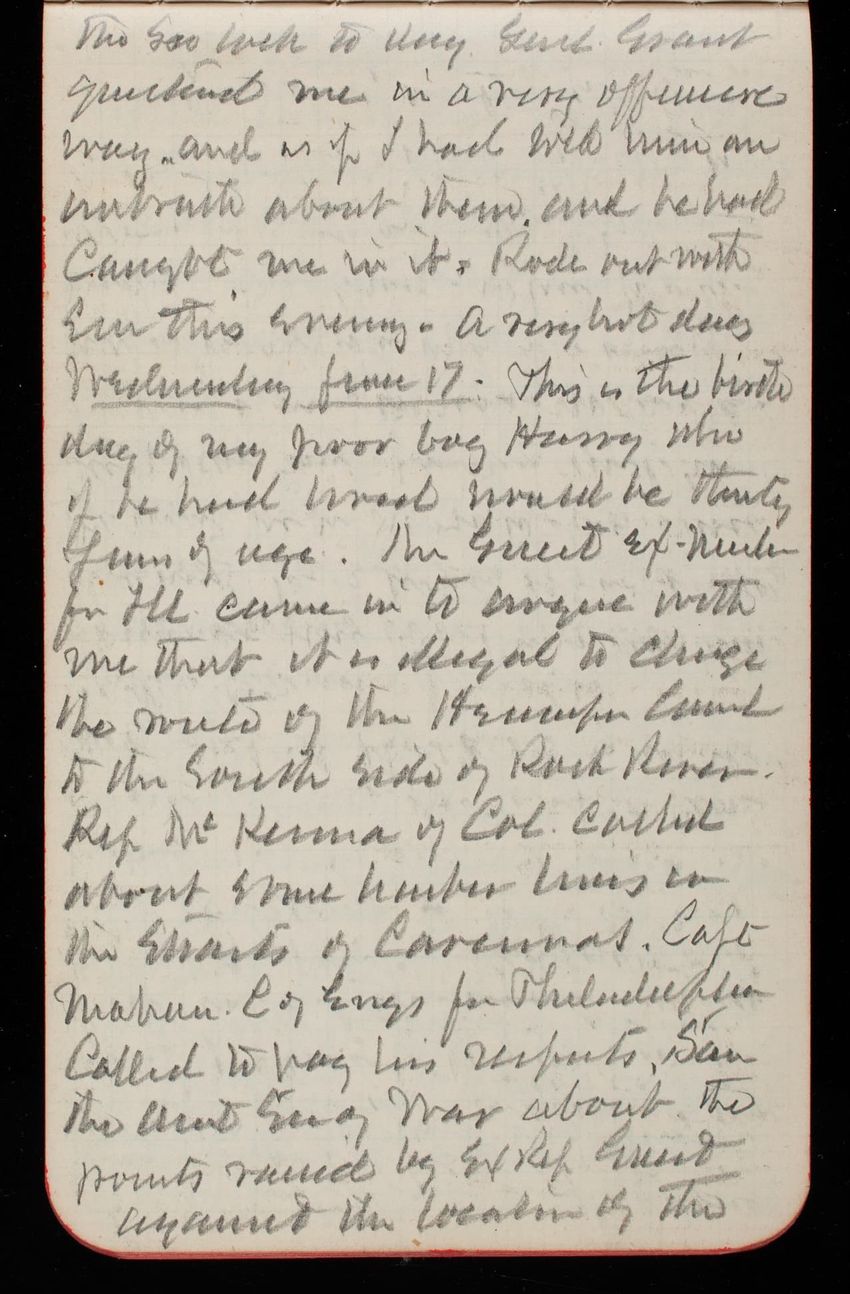 the Soo lock to day. Genl. Grant
questioned me in a very offensive
way, and as if I had told him an
untruth about them, and he had
Caught me in it. Rode out with
Em this evening. A very hot day
Wednesday June 17. This is the birth
day of my poor boy Harry who
if he had lived would be thirty
years of age. Mr Guest Ex-Member
for Ill. came in to argue with
me that it is illegal to change
the route of the Hennepin Canal
to the South side of Rock River.
Rep McKenna of Cal. called
about some harbor lines in
the Straits of Carcunas. Capt
Mahan. C of Engs for Philadelphia
Called to pay his respects, Saw
the Asst Secy War about the
points raised by Ex Rep Guest
against the location of the